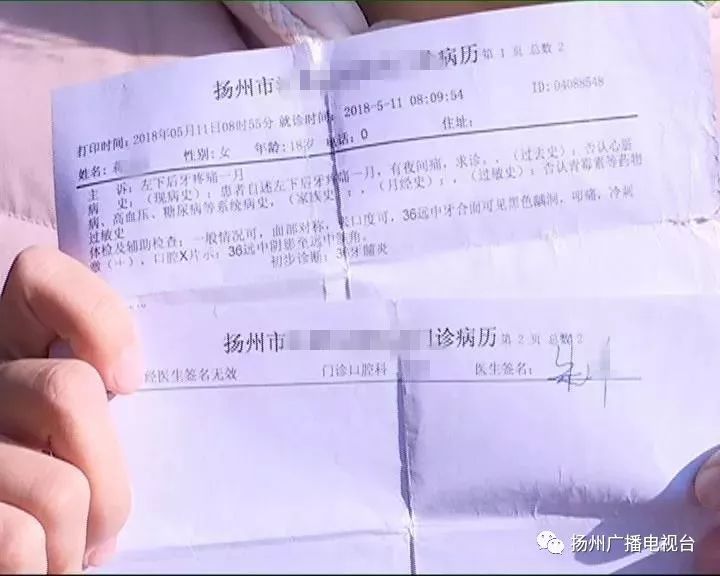 扬州市 诊病历 第 1 页 总数 2
打印时间：2018年05月11日08时55分 就诊时间： 2018-5-11 08:09:54 ID:04088548
姓名： 性别：女 年龄：18岁 电话：0 住址：
主 诉：左下后牙疼痛一月
病 史：（现病史）：患者自述左下后牙疼痛一月，有夜间痛，求诊。，（过去史）：否认心脏
病、高血压、糖尿病等系统病史，（家族史）：，（月经史）：，（过敏史）：否认青霉素等药物
过敏史
体检及辅助检查：一般情况可，面部对称，张口度可，36远中牙合面可见黑色龋洞，叩痛，冷刺
激（+），口腔X片示：36远中阴影至远中髓角。 初步诊断：36牙髓炎
扬州市 门诊病历 第 2 页 总数 2
经医生签名无效 门诊口腔科 医生签名：
扬州广播电视台